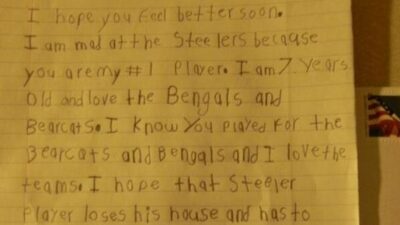 I hope you feel better soon.
I am mad at the Steelers because
you are my #1 Player. I am 7 years
Old and love the Bengals and
Bearcats. I know you played for the
Bearcats and Bengals and I love the
teams. I hope that Steeler
Player loses his house and has to